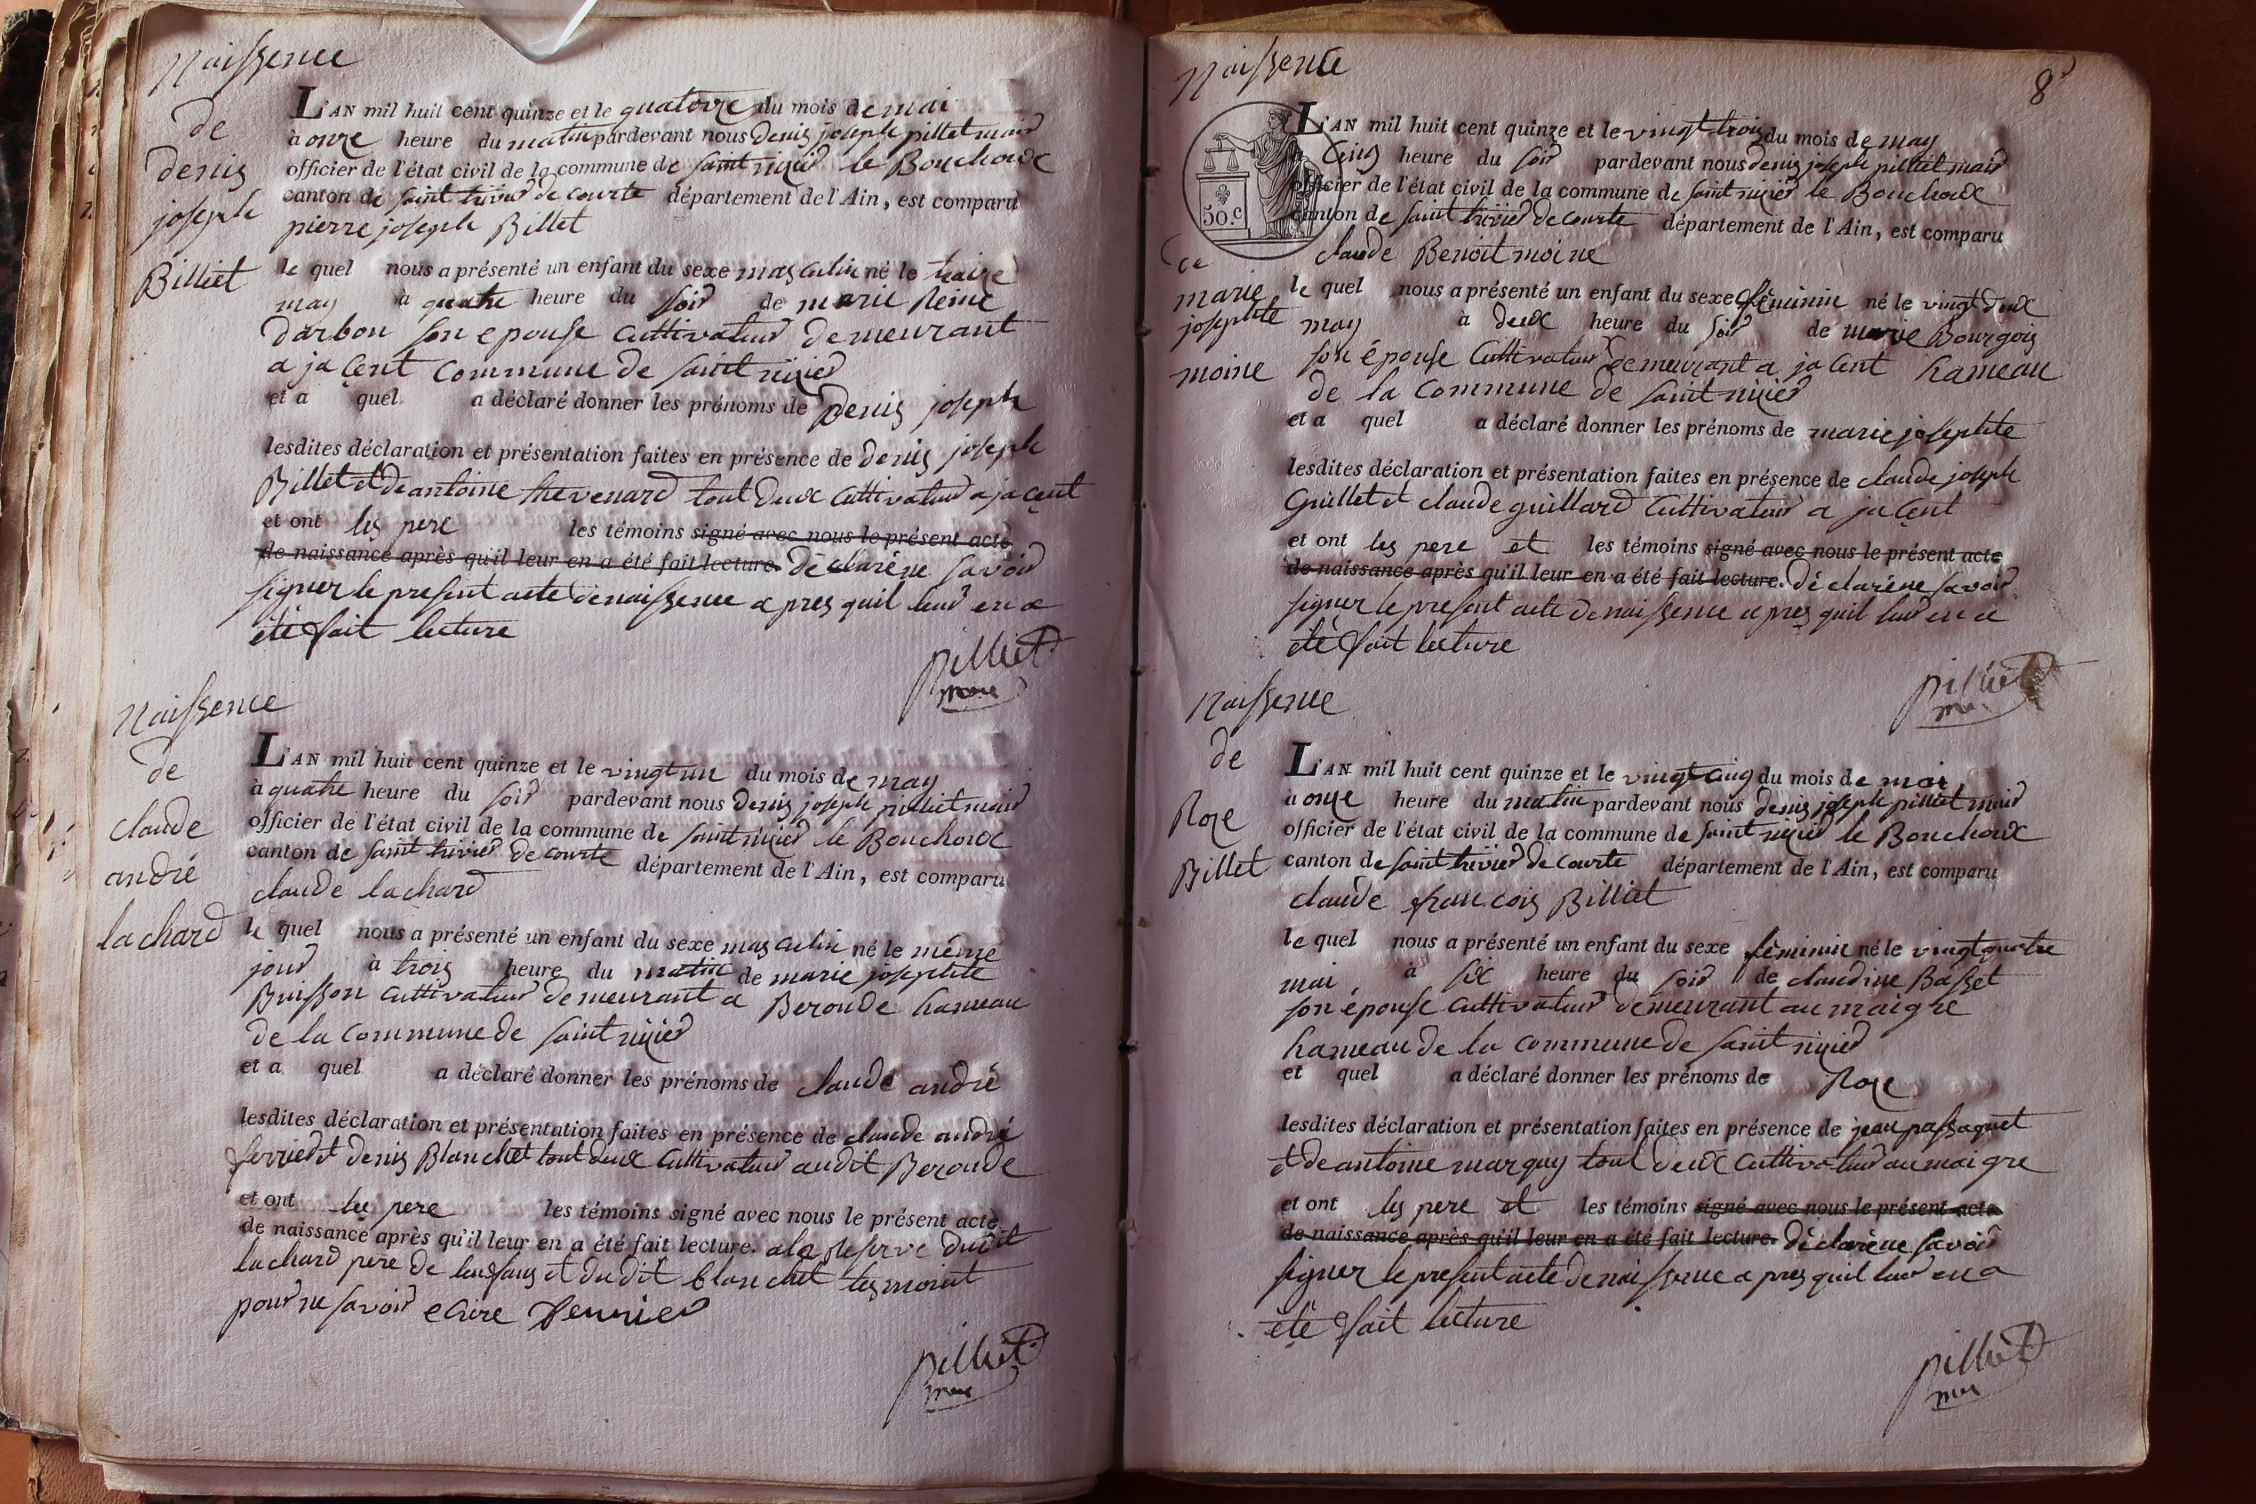 Naissence
de
denis
joseph
Billiet
L'AN mil huit cent quinze et le quatorze du mois de mai
à onze heure du matin pardevant nous Denis joseph pilliet maire
officier de l'état civil de la commune de saint nizier le Bouchoux
canton de saint trivier de courte département de l'Ain, est comparu
pierre joseph Billet
le quel nous a présenté un enfant du sexe masculin né le treize
may à quatre heure du soir de marie Reine
darbon son epouse cultivateur demeurant
a jacent commune de saint nizier
et a quel a déclaré donner les prénoms de Denis joseph
lesdites déclaration et présentation faites en présence de denis joseph
Billet et de antoine thevenard tout deux cultivateur a jacent
et ont les pere les témoins signé avec nous le présent acte
de naissance après qu'il leur en a été fait lecture. déclaré ne savoir
signer le present acte de naissence apres quil leur en a
été fait lecture
pilliet
maire
Naissence
de
claude
andré
lachard
L'AN mil huit cent quinze et le vingt un du mois de may
à quatre heure du soir pardevant nous denis joseph pilliet maire
officier de l'état civil de la commune de saint nizier le Bouchoux
canton de saint trivier de courte département de l'Ain, est comparu
claude lachard
le quel nous a présenté un enfant du sexe masculin né le même
jour à trois heure du matin de marie josephte
Buisson cultivateur demeurant a Beronde hameau
de la commune de saint nizier
et a quel a déclaré donner les prénoms de claude andré
lesdites déclaration et présentation faites en présence de claude andré
ferrier et denis Blanchet tout deux cultivateur audit Beronde
et ont les pere les témoins signé avec nous le présent acte
de naissance après qu'il leur en a été fait lecture. a la reserve dudit
lachard pere de lenfans et dudit blanchet tesmoint
pour ne savoir ecrire
pilliet
maire
8
Naissence
de
marie
josephte
moine
50.c
L'AN mil huit cent quinze et le vingt trois du mois de may
à cinq heure du soir pardevant nous denis joseph pilliet maire
officier de l'état civil de la commune de saint nizier le Bouchoux
canton de saint trivier de courte département de l'Ain, est comparu
claude Benoit moine
le quel nous a présenté un enfant du sexe féminin né le vingt deux
may à deux heure du soir de marie Bourgois
son épouse cultivateur demeurant a jacent hameau
de la commune de saint nizier
et a quel a déclaré donner les prénoms de marie josephte
lesdites déclaration et présentation faites en présence de claude joseph
Guillet et claude guillard cultivateur a jacent
et ont les pere et les témoins signé avec nous le présent acte
de naissance après qu'il leur en a été fait lecture. déclaré ne savoir
signer le present acte de naissence apres quil leur en a
été fait lecture
pilliet
maire
Naissence
de
Roze
Billet
L'AN mil huit cent quinze et le vingt cinq du mois de mai
à onze heure du matin pardevant nous denis joseph pilliet maire
officier de l'état civil de la commune de saint nizier le Bouchoux
canton de saint trivier de courte département de l'Ain, est comparu
claude francois Billiet
le quel nous a présenté un enfant du sexe féminin né le vingt quatre
mai à six heure du soir de claudine Basset
son épouse cultivateur demeurant au maigre
hameau de la commune de saint nizier
et quel a déclaré donner les prénoms de Roze
lesdites déclaration et présentation faites en présence de jean passaquet
et de antoine marquy tout deux cultivateur au maigre
et ont les pere et les témoins signé avec nous le présent acte
de naissance après qu'il leur en a été fait lecture. déclaré ne savoir
signer le present acte de naissence apres quil leur en a
été fait lecture
pilliet
maire